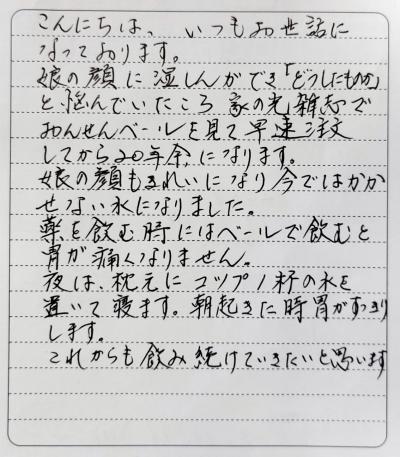 こんにちは、いつもお世話に
なっております。
娘の顔に湿しんができ「どうしたものか」
と悩んでいたころ 家の光雑誌で
おんせんベールを見て早速注文
してから20年余りになります。
娘の顔もきれいになり今ではかか
せない水になりました。
薬を飲む時にはベールで飲むと
胃が痛くなりません。
夜は、枕元にコップ1杯の水を
置いて寝ます。朝起きた時胃がすっきり
します。
これからも飲み続けていきたいと思います